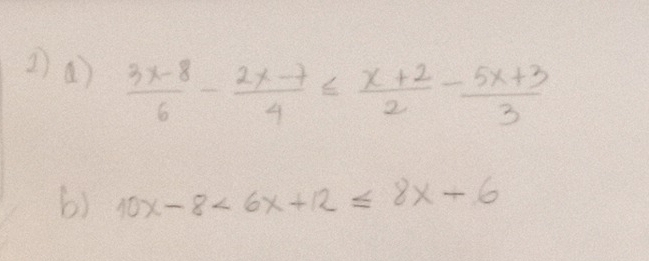 2) a) \frac{3x-8}{6} - \frac{2x-7}{4} ≤ \frac{x+2}{2} - \frac{5x+3}{3}
b) 10x-8 < 6x+12 ≤ 8x+6